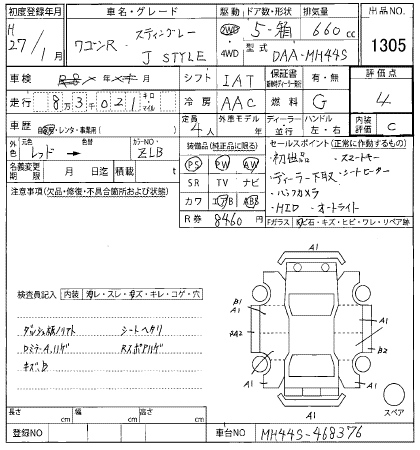 初度登録年月 車名・グレード 駆動 ドア数・形状 排気量 出品NO.
H 27/1月 ワゴンR スティングレー J STYLE 2WD 4WD 5・箱 660cc 1305
型式 DAA-MH44S
車検 シフト IAT 保証書 有・無 評価点
走行 8万3千021 キロ マイル 冷房 AAC 燃料 G 4
車歴 自家用・レンタ・事業用( ) 定員 4人 外車モデル 年 ディーラー 並行 ハンドル 左・右 内装評価 C
外色 元色 レッド → 色替 カラーNO. ZLB
装備品(純正品に限る) セールスポイント(正常に作動するもの)
名義変更期限 月 日迄 積載 t
PS PW AW
SR TV ナビ
カワ エアB ABS
R券 8460円
・スマートキー
・ディーラー下取 ・シートヒーター
・バックカメラ
・HID ・オートライト
注意事項(欠品・修復・不具合箇所および状態)
Fガラス 飛石・キズ・ヒビ・ワレ・リペア跡
検査員記入 内装 汚レ・スレ・キズ・キレ・コゲ・穴
シートヘタリ
キズ
A1
B1
A1
A1
AA2
B2
A1
A1
A1
スペア
長さ cm 幅 cm 高さ cm
登録NO 車台NO MH44S-468376